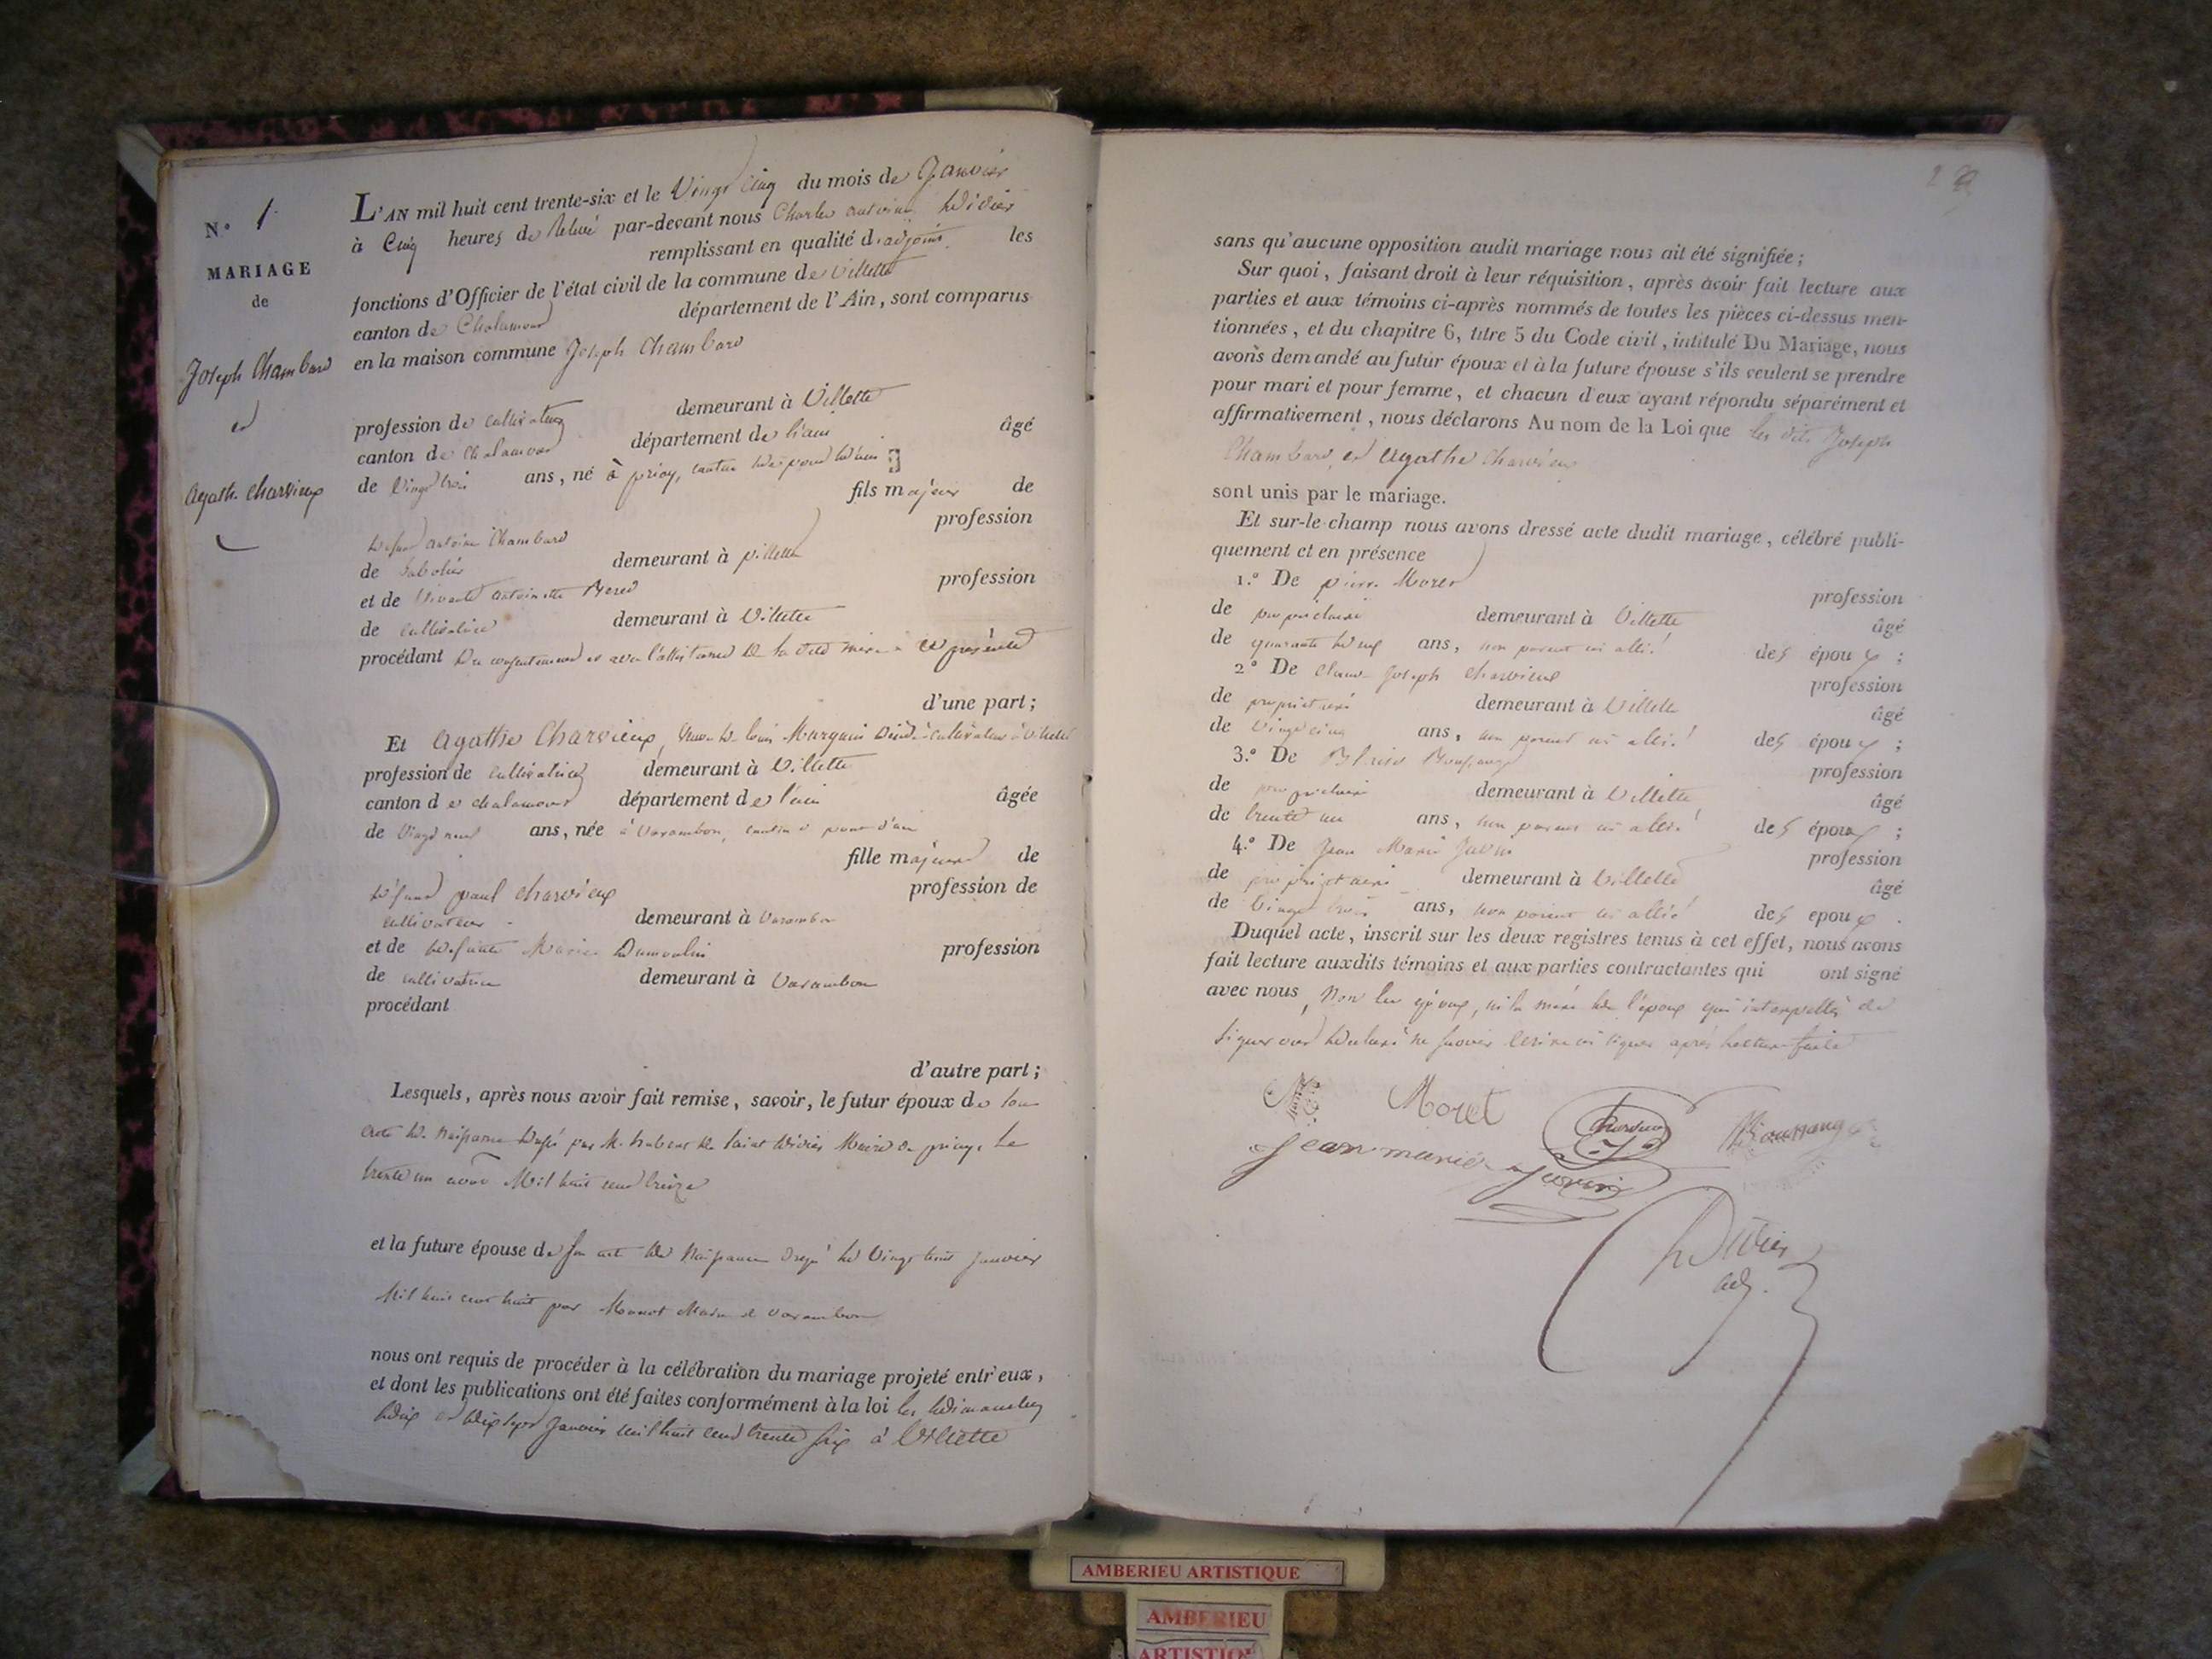 N° 1
MARIAGE
de
Joseph Chambard
et
Agathe Charvieux
L'AN mil huit cent trente-six et le Vingt cinq du mois de Janvier
à Cinq heures de Relevé par-devant nous Charles antoine Didier
remplissant en qualité d'adjoint les
fonctions d'Officier de l'état civil de la commune de Villette
canton de Chalamont département de l'Ain, sont comparus
en la maison commune Joseph Chambard
profession de cultivateur demeurant à Villette
canton de Chalamont département de l'ain âgé
de Vingt trois ans, né à priay, canton de pont d'ain
fils majeur de
défunt antoine Chambard profession
de Sabotier demeurant à Villette
et de Vivante antoinette profession
de cultivatrice demeurant à Villette
procédant du consentement et avec l'assistance de la dite mère à ce présente
d'une part;
Et Agathe Charvieux, Veuve de louis Marguin décédé cultivateur à Villette
profession de cultivatrice demeurant à Villette
canton de chalamont département de l'ain âgée
de Vingt neuf ans, née à Varambon, canton de pont d'ain
fille majeure de
défunt paul charvieux profession de
cultivateur demeurant à Varambon
et de défunte Marie Dumoulin profession
de cultivatrice demeurant à Varambon
procédant
d'autre part;
Lesquels, après nous avoir fait remise, savoir, le futur époux de son
acte de Naissance par M. de Saint Didier Maire de priay, le
trente un août Mil huit cent treize
et la future épouse de son acte de Naissance le Vingt huit janvier
Mil huit cent huit par Monot Maire de Varambon
nous ont requis de procéder à la célébration du mariage projeté entr'eux,
et dont les publications ont été faites conformément à la loi les dimanches
dix et dix sept Janvier mil huit cent trente six à Villette
sans qu'aucune opposition audit mariage nous ait été signifiée;
Sur quoi, faisant droit à leur réquisition, après avoir fait lecture aux
parties et aux témoins ci-après nommés de toutes les pièces ci-dessus men-
tionnées, et du chapitre 6, titre 5 du Code civil, intitulé Du Mariage, nous
avons demandé au futur époux et à la future épouse s'ils veulent se prendre
pour mari et pour femme, et chacun d'eux ayant répondu séparément et
affirmativement, nous déclarons Au nom de la Loi que les dits Joseph
Chambard et Agathe Charvieux
sont unis par le mariage.
Et sur-le-champ nous avons dressé acte dudit mariage, célébré publi-
quement et en présence
1.° De pierre Moret profession
de propriétaire demeurant à Villette âgé
de quarante deux ans, non parent ni allié des époux;
2° De Joseph Charvieux profession
de propriétaire demeurant à Villette âgé
de Vingt cinq ans, non parent ni allié des époux;
3.° De profession
de propriétaire demeurant à Villette âgé
de trente un ans, non parent ni allié des époux;
4.° De Jean Marie Juvin profession
de propriétaire demeurant à Villette âgé
de Vingt trois ans, non parent ni allié des epoux.
Duquel acte, inscrit sur les deux registres tenus à cet effet, nous avons
fait lecture auxdits témoins et aux parties contractantes qui ont signé
avec nous, Non les époux, ni la mère de l'époux qui interpellés de
signer ont déclaré ne savoir écrire ni signer après lecture faite
Moret
Jean marie
Didier
adj.
AMBERIEU ARTISTIQUE
AMBERIEU
ARTISTIQUE